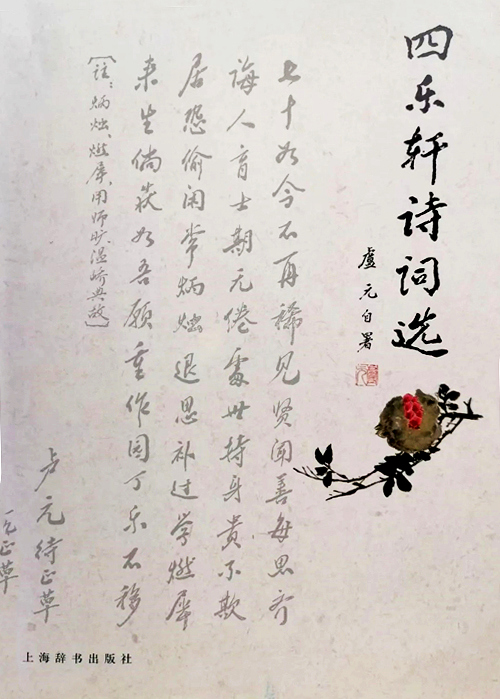 四乐轩诗词选
盧元自署
七十如今不再稀见贤闻善每思齐
诲人育士期无倦處世持身贵不欺
居恐偷闲常炳烛退思补过学燃犀
来生倘获如吾愿重作园丁乐不移
〔註：炳烛、燃犀，用师旷、温峤典故〕
卢元待正草
元正草
上海辞书出版社